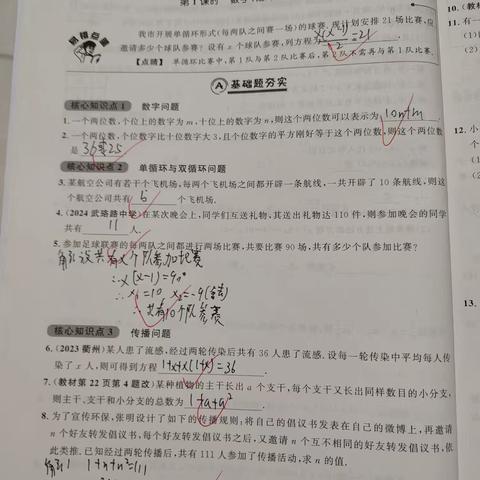 第1课时
易错点睛
我市开展单循环形式(每两队之间赛一场)的球赛,现计划安排21场比赛,应
邀请多少个球队参赛?设有x个球队参赛,列方程为 x(x-1)/2=21 .
【点睛】 单循环比赛中,第1队与第2队比赛后,第2队不需再与第1队比赛.
A 基础题夯实
核心知识点1 数字问题
1.一个两位数,个位上的数字为m,十位上的数字为n,则这个两位数可以表示为 10n+m .
2.一个两位数,个位数字比十位数字大3,且个位数字的平方刚好等于这个两位数,则这个两位数
是 36或25
核心知识点2 单循环与双循环问题
3.某航空公司有若干个飞机场,每两个飞机场之间都开辟一条航线,一共开辟了10条航线,则这
个航空公司共有 6 个飞机场.
4.(2024武珞路中学)在某次晚会上,同学们互送礼物,其送出礼物达110件,则参加晚会的同学
共有 11 人.
5.参加足球联赛的每两队之间都进行两场比赛,共要比赛90场,共有多少个队参加比赛?
解:设共有x个队参加比赛
∴x(x-1)=90
∴x₁=10 x₂=-9(舍去)
∴共有10个队参赛
核心知识点3 传播问题
6.(2023衢州)某人患了流感,经过两轮传染后共有36人患了流感.设每一轮传染中平均每人传
染了x人,则可得到方程 1+x+x(1+x)=36 .
7.(教材第22页第4题改)某种植物的主干长出a个支干,每个支干又长出同样数目的小分支,
则主干、支干和小分支的总数为 1+a+a² .
8.为了宣传环保,张明设计了如下的传播规则:将自己的倡议书发表在自己的微博上,再邀请
n个好友转发倡议书,每个好友转发倡议书之后,又邀请n个互不相同的好友转发倡议书,依
此类推.已知经过两轮传播后,共有111人参加了传播活动,求n的值.
解:1+n+n²=111
10.(教材
11.有一
(1)
(2)
12.小
13.